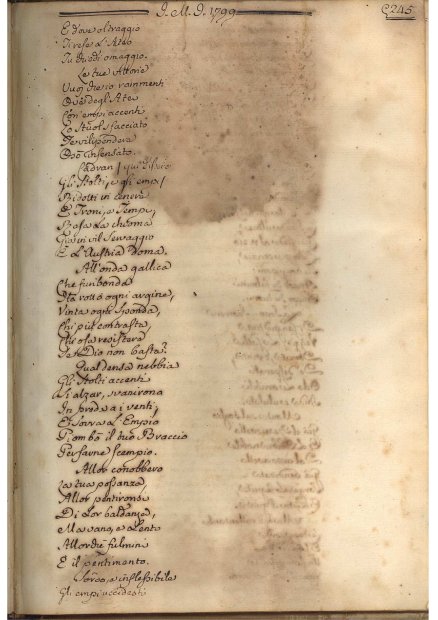 J. M. J. 1799
C 245
E dove oltraggio
Ti rese l'Ateo
Tu di omaggio.
Le tue Vittorie
Vuoi
degli Atei
Con empi accenti
Lo Stuol sfacciato
Te vilipendeva
insensato.
Cadran
Gli Stolti, e gli empi
Ridotti in cenere
E Troni, e Tempi,
Sposa la chioma
Giù in vil Servaggio
E l'Austria doma.
All'onda gallica
Che furibonda
Ha rotto ogni argine,
Vinta ogni Sponda,
Chi più contrasta,
Chi osa resistere
Se Dio non basta?
Qual densa nebbia
Gli Stolti accenti
Si alzar, svanirono
In preda a i venti,
E sovra l'Empio
Piombò il tuo Braccio
Per farne scempio.
Allor conobbero
La tua possanza,
Allor pentironsi
Di lor baldanza,
Ma vano, e lento
Allor
fulmini
E il pentimento.
e inflessibile
Gli empi uccidesti